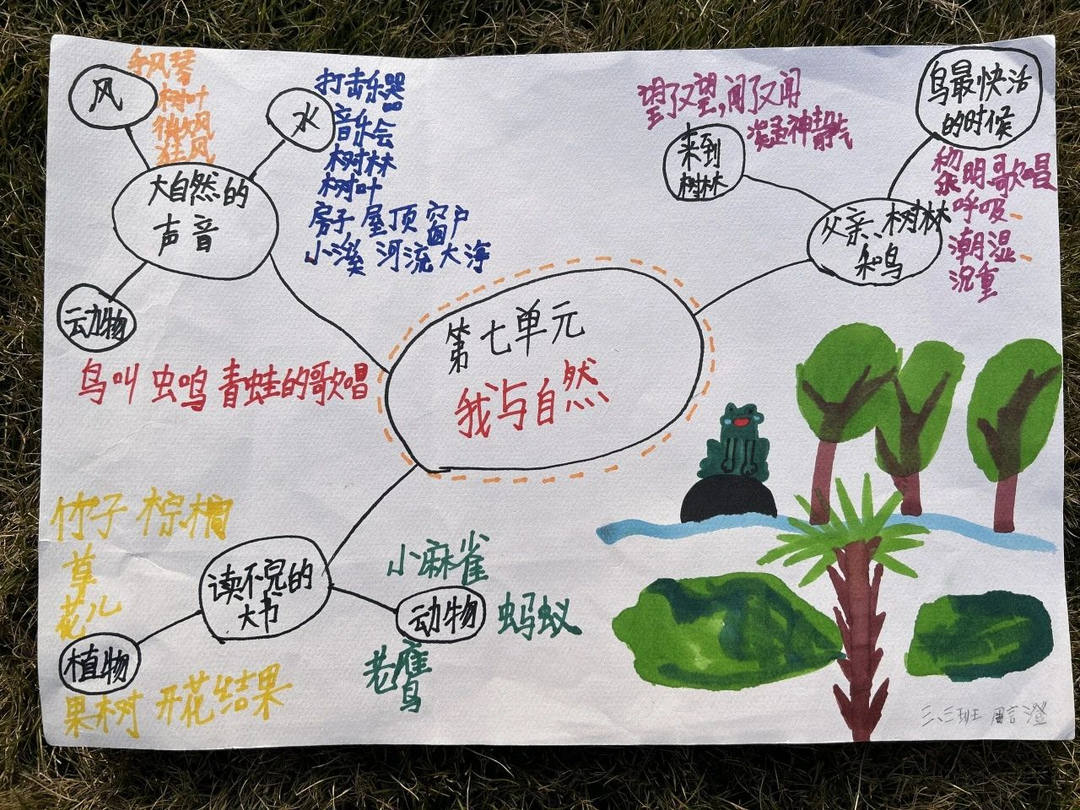 风
手风琴
树叶
微风
狂风
水
打击乐器
音乐会
树林
树叶
房子 屋顶 窗户
小溪 河流 大海
大自然的
声音
动物
鸟叫 虫鸣 青蛙的歌唱
望了又望,闻了又闻
凝神静气
来到
树林
鸟最快活
的时候
黎明歌唱
呼吸
潮湿
沉重
父亲、树林
和鸟
第七单元
我与自然
竹子 棕榈
草
花儿
植物
果树 开花结果
读不完的
大书
小麻雀
动物
蚂蚁
老鹰
三、三班